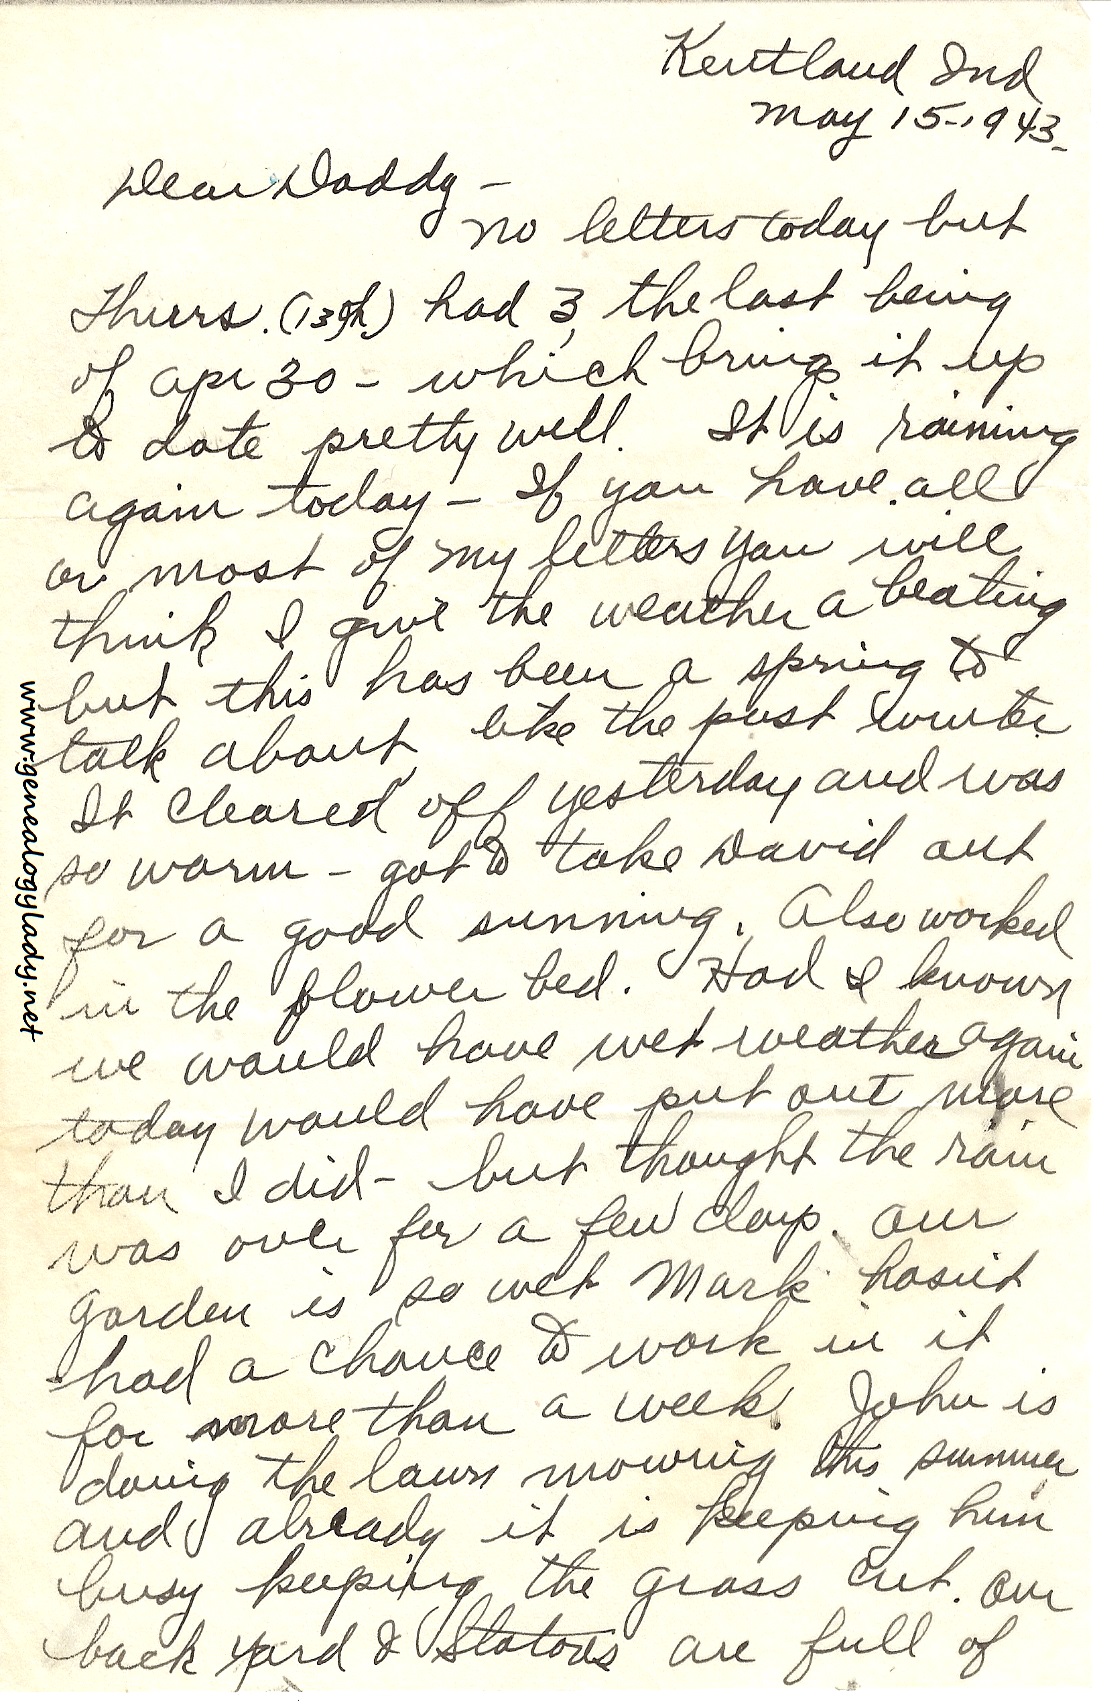 Kentland Ind
May 15-1943-
Dear Daddy -
No letters today but
Thurs. (13th) had 3, the last being
of Apr 30 - which brings it up
to date pretty well. It is raining
again today - If you have all
or most of my letters you will
think I give the weather a beating
but this has been a spring to
talk about, like the past winter
It cleared off yesterday and was
so warm - got to take David out
for a good sunning. Also worked
in the flower bed. Had I known
we would have wet weather again
today would have put out more
than I did - but thought the rain
was over for a few days. Our
garden is so wet Mark hasn't
had a chance to work in it
for more than a week. John is
doing the lawn mowing this summer
and already it is keeping him
busy keeping the grass cut. Our
back yard & Slatons are full of
www.genealogylady.net